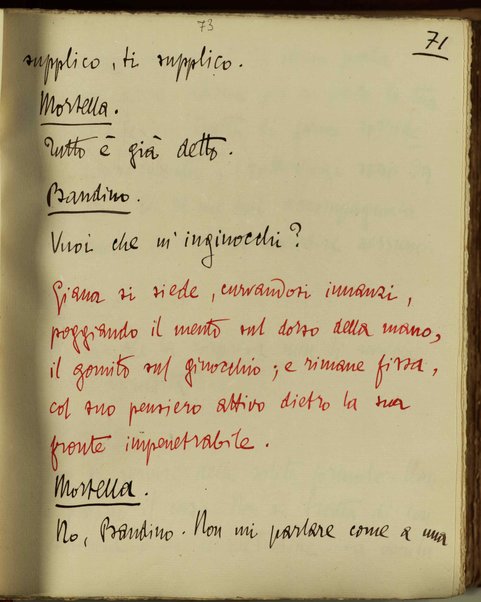 73
71
supplico, ti supplico.
Mortella.
Tutto è già detto.
Bandino.
Vuoi che m'inginocchi?
Giana si siede, curvandosi innanzi,
poggiando il mento sul dorso della mano,
il gomito sul ginocchio; e rimane fissa,
col suo pensiero attivo dietro la sua
fronte impenetrabile.
Mortella.
No, Bandino. Non mi parlare come a una